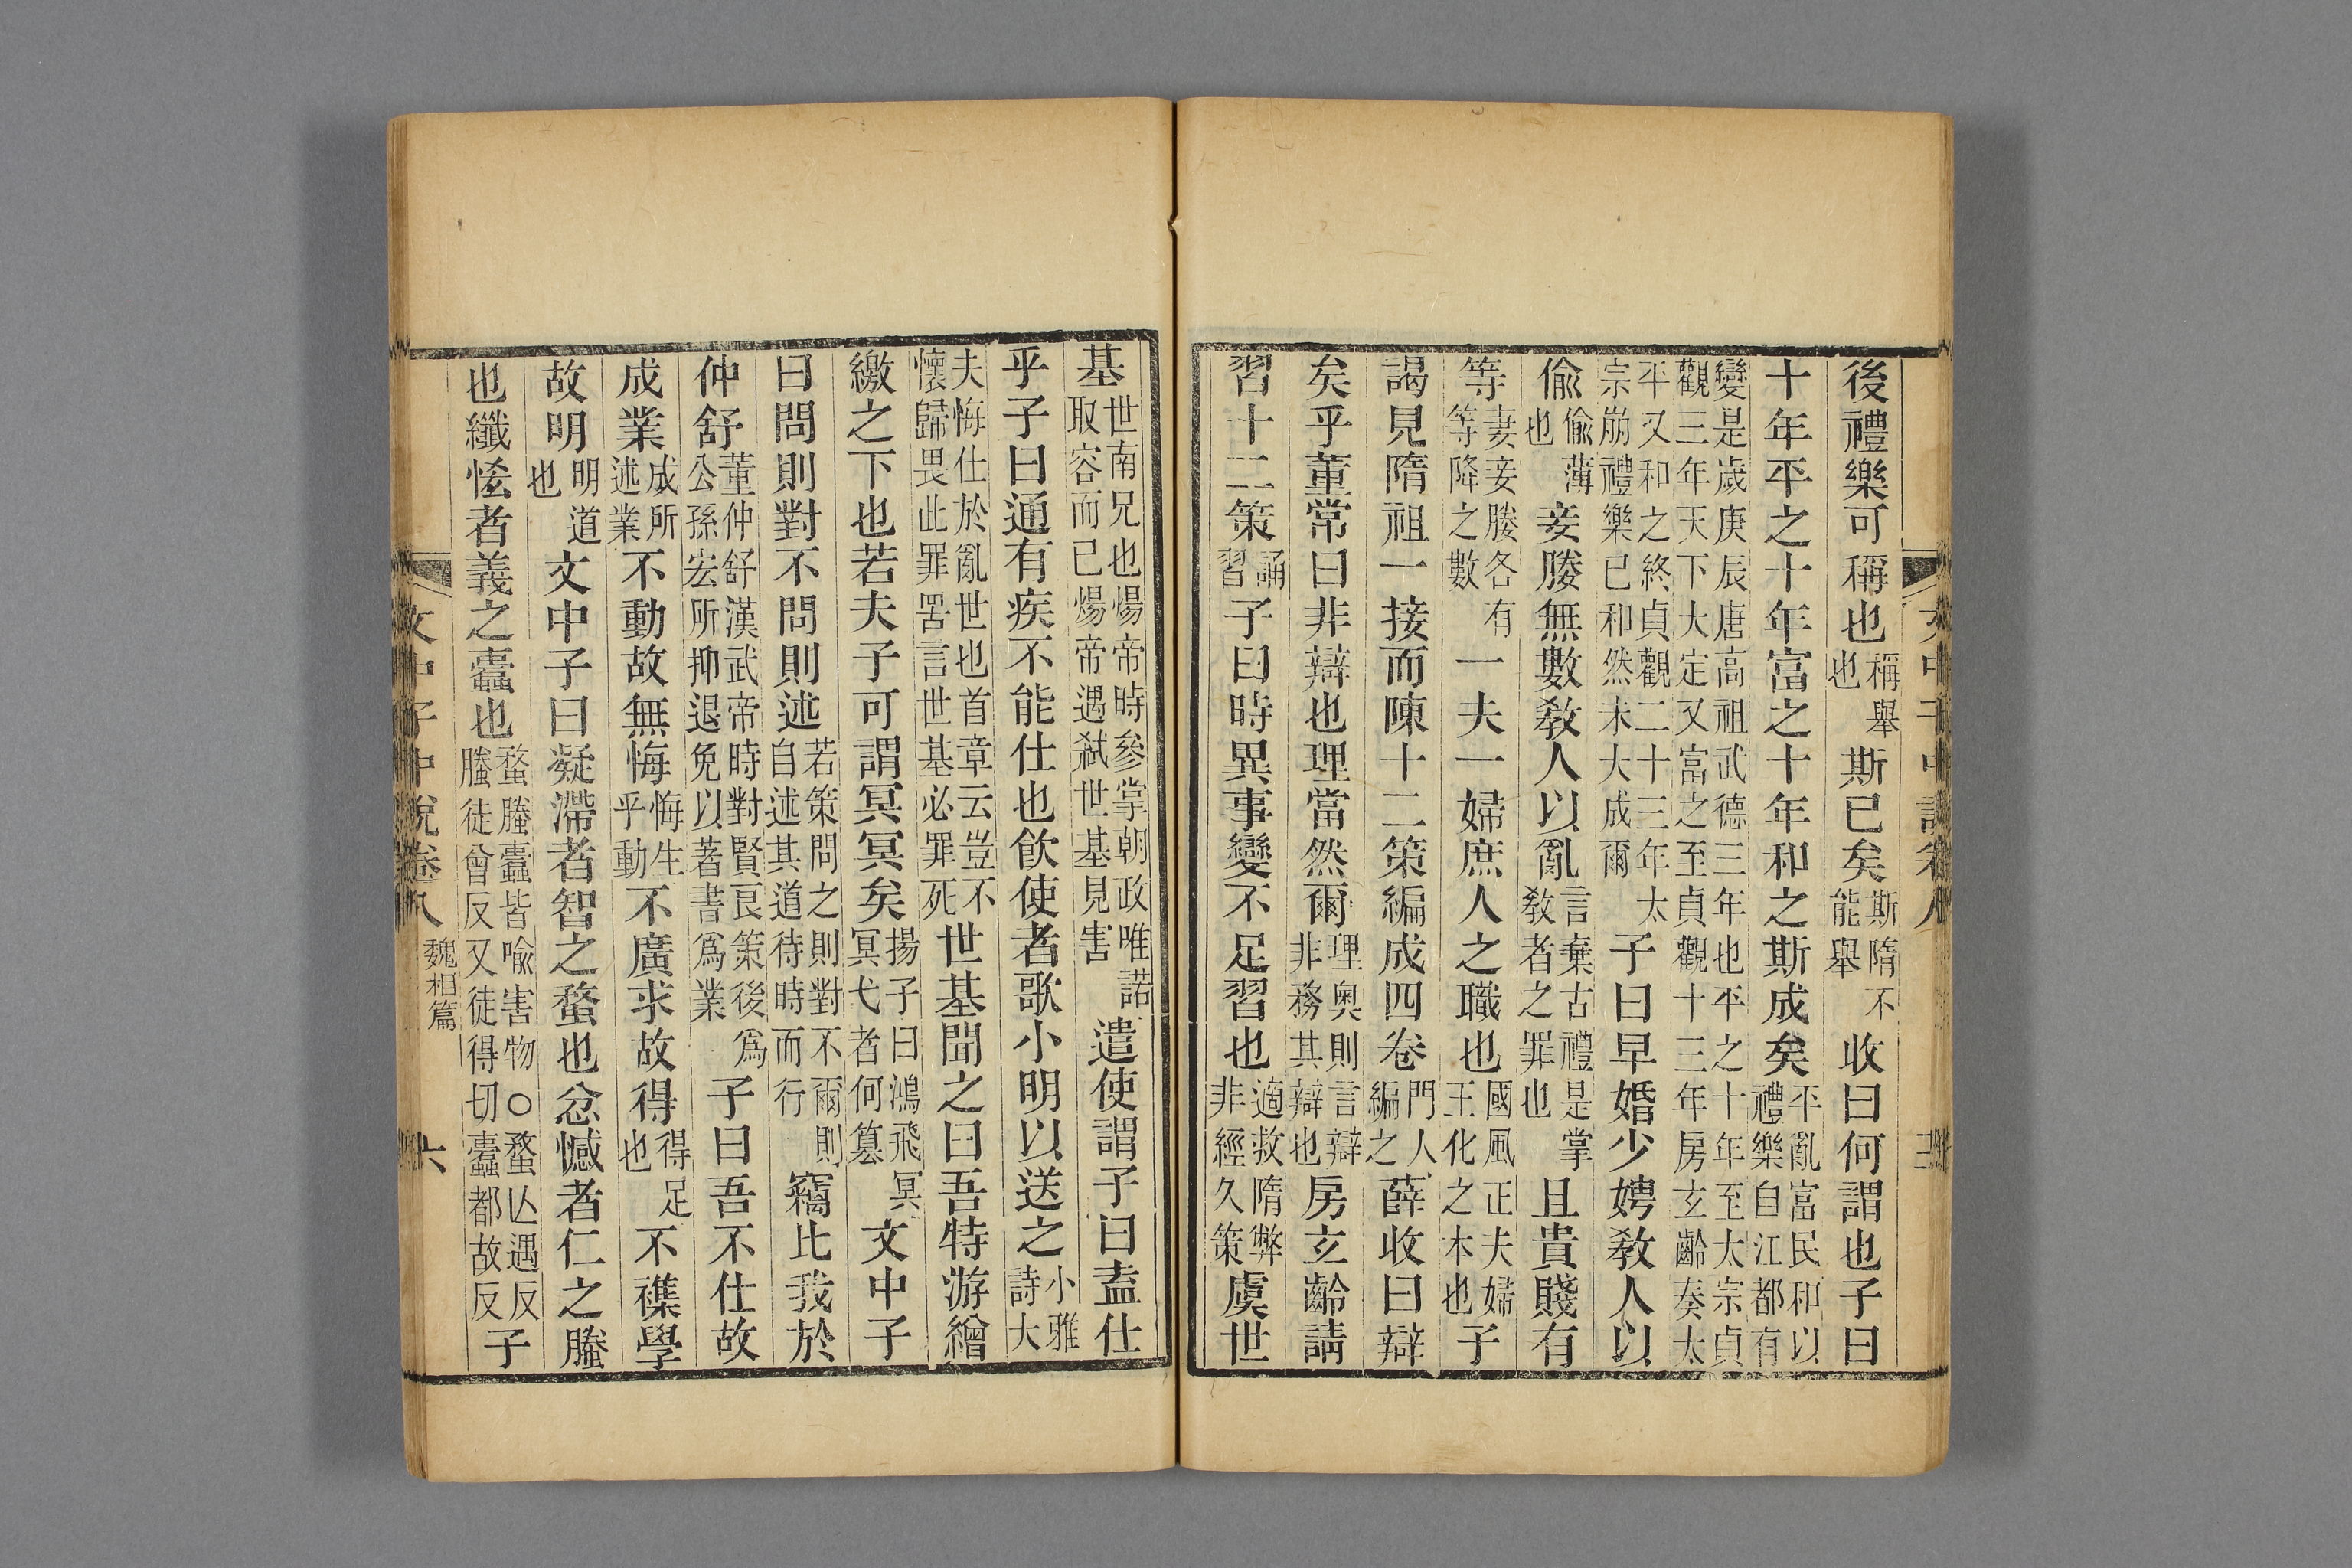 後禮樂可稱也稱舉也斯已矣斯隋不能舉收曰何謂也子曰
十年平之十年富之十年和之斯成矣平亂富民和以禮樂自江都有
變是歲庚辰唐高祖武德三年也平之十年至太宗貞觀三年天下大定又富之至貞觀十三年房玄齡奏太
平又和之終貞觀二十三年太宗崩禮樂已和然未大成爾子曰早婚少娉教人以
偷偷薄也妾媵無數教人以亂言棄古禮是掌教者之罪也且貴賤有
等妻妾媵各有等降之數一夫一婦庶人之職也國風正夫婦王化之本也子
謁見隋祖一接而陳十二策編成四卷門人編之薛收曰辯
矣乎董常曰非辯也理當然爾理奧則言辯非務其辯也房玄齡請
習十二策誦習子曰時異事變不足習也適救隋弊非經久策虞世
基世南兄也煬帝時參掌朝政唯諾取容而已煬帝遇弒世基見害遣使謂子曰盍仕
乎子曰通有疾不能仕也飲使者歌小明以送之小雅詩大
夫悔仕於亂世也首章云豈不懷歸畏此罪罟言世基必罪死世基聞之曰吾特游繒
繳之下也若夫子可謂冥冥矣揚子曰鴻飛冥冥弋者何篡文中子
曰問則對不問則述若策問之則對不爾則自述其道待時而行竊比我於
仲舒董仲舒漢武帝時對賢良策後爲公孫宏所抑退免以著書爲業子曰吾不仕故
成業成所述業不動故無悔悔生乎動不廣求故得得足也不襍學
故明明道也文中子曰凝滯者智之蝥也忿憾者仁之螣
也纖恡者義之蠧也蝥螣蠧皆喻害物○蝥亾遇反螣徒曾反又徒得切蠧都故反子
文中子中說卷八 魏相篇 六